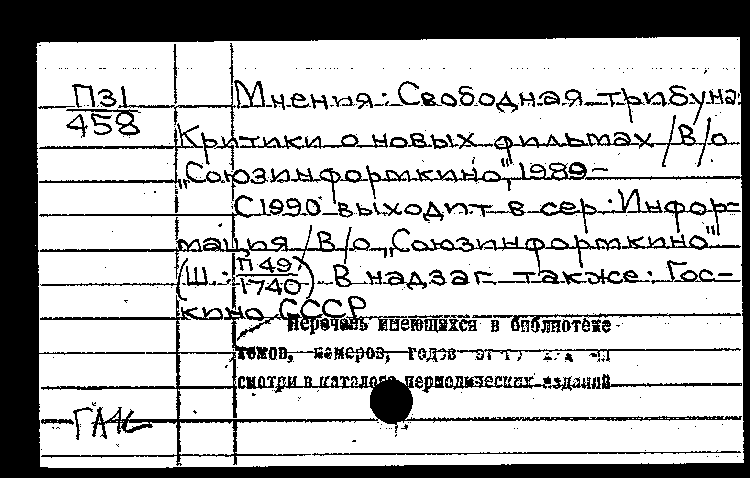 П31
458
Мнения: Свободная трибуна
Критики о новых фильмах / В/о
„Союзинформкино", 1989-
С 1990 выходит в сер.: Инфор-
мация / В/о „Союзинформкино"
(Ш.: П49/1740). В надзаг. также: Гос-
кино СССР
Перечень имеющихся в библиотеке
томов, номеров, годов
смотри в каталоге периодических изданий